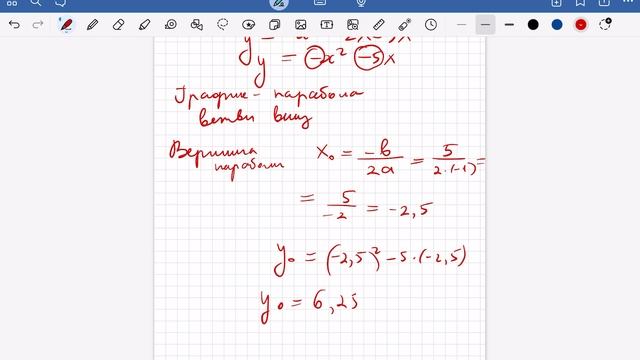 y = −x² −5x
График - парабола
ветви вниз
Вершина параболы x₀ = −b/2a = 5/2·(−1) =
= 5/−2 = −2,5
y₀ = (−2,5)² −5·(−2,5)
y₀ = 6,25